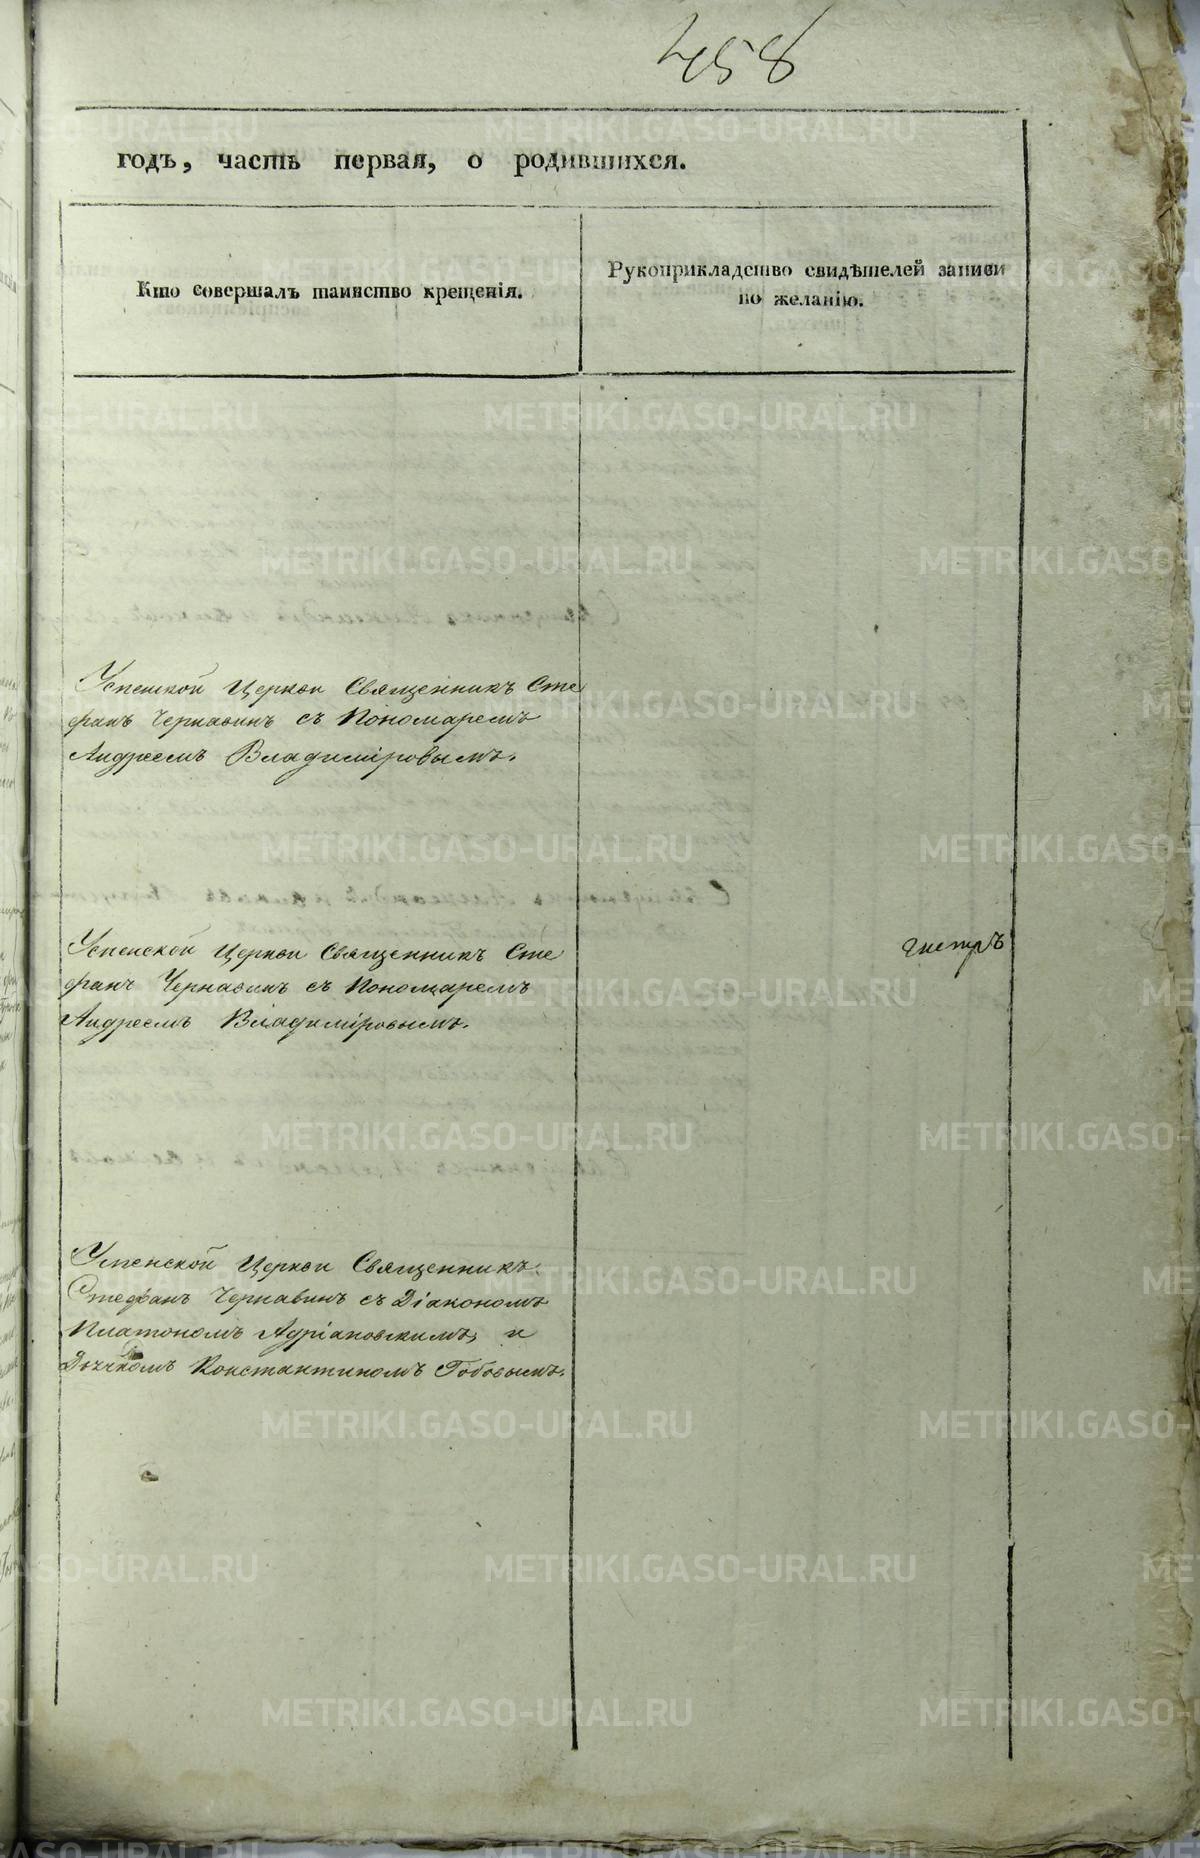 458
годъ, часть первая, о родившихся.
Кто совершалъ таинство крещенія.
Рукоприкладство свидѣтелей записи
по желанію.
Успенской Церкви Священникъ Сте
фанъ Чернавинъ съ Пономаремъ
Андреемъ Владиміровымъ.
Успенской Церкви Священникъ Сте
фанъ Чернавинъ съ Пономаремъ
Андреемъ Владиміровымъ.
гистръ
Успенской Церкви Священникъ
Стефанъ Чернавинъ съ Діакономъ
Платономъ Адріановскимъ, и
Дьячкомъ Константиномъ
METRIKI.GASO-URAL.RU